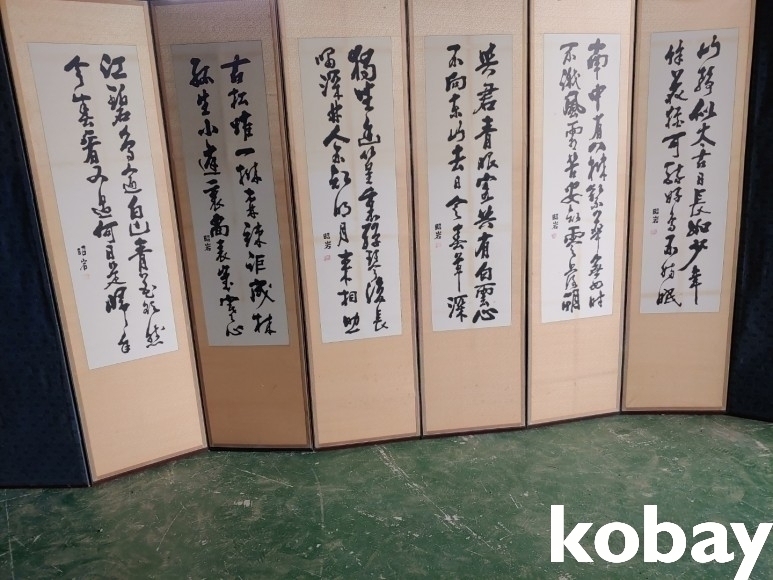 山静似太古日長如少年
餘花猶可醉好鳥不妨眠
昭岩
南中有八樹繁華無四時
不識風霜苦安知零落期
昭岩
與君青眼客共有白雲心
不向東山去日令春草深
昭岩
獨坐幽篁裏彈琴復長
嘯深林人不知明月來相照
昭岩
古松唯一樹森竦詎成林
生小尚表歲寒心
昭岩
江碧鳥逾白山青花欲然
今春看又過何日是歸年
昭岩
kobay